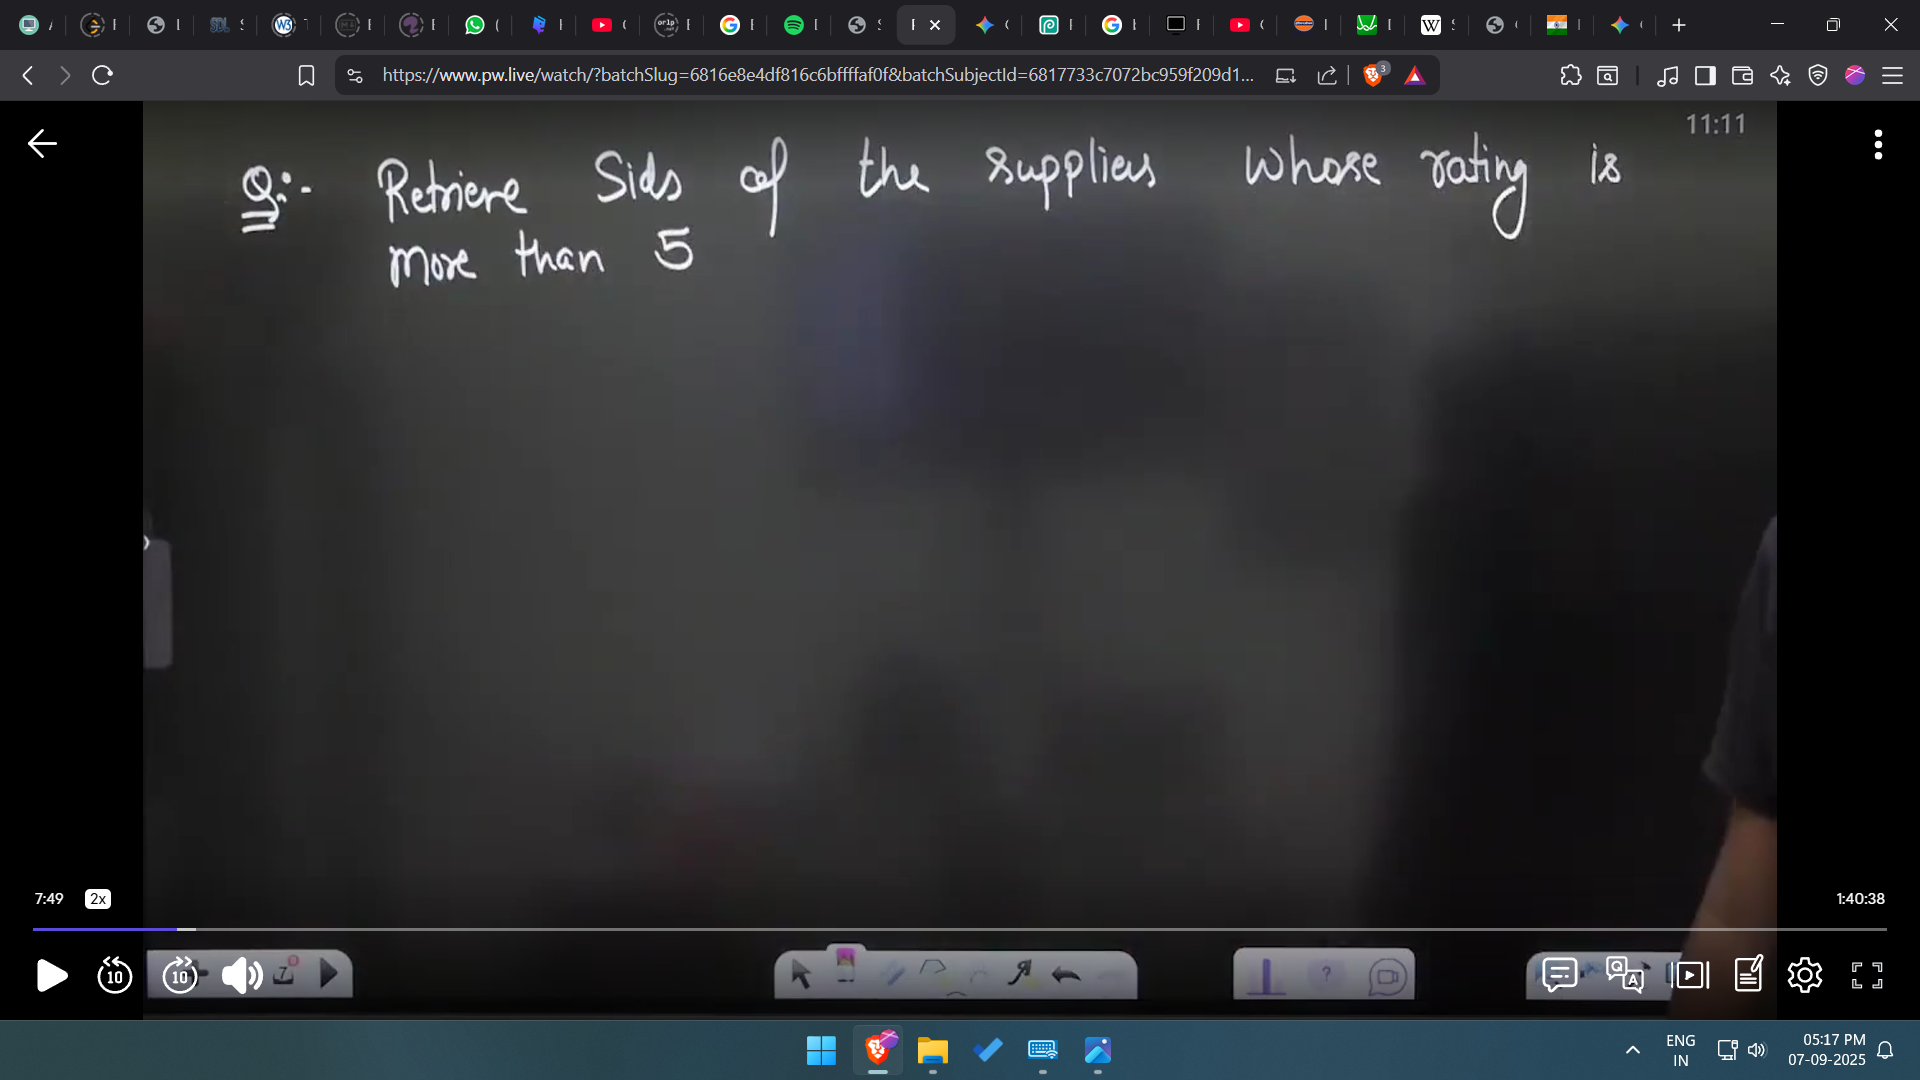 https://www.pw.live/watch/?batchSlug=6816e8e4df816c6bffffaf0f&batchSubjectId=6817733c7072bc959f209d1...
3
11:11
Q:- Retrieve Sids of the suppliers whose rating is
more than 5
7:49 2x 1:40:38
10 10
ENG
IN
05:17 PM
07-09-2025